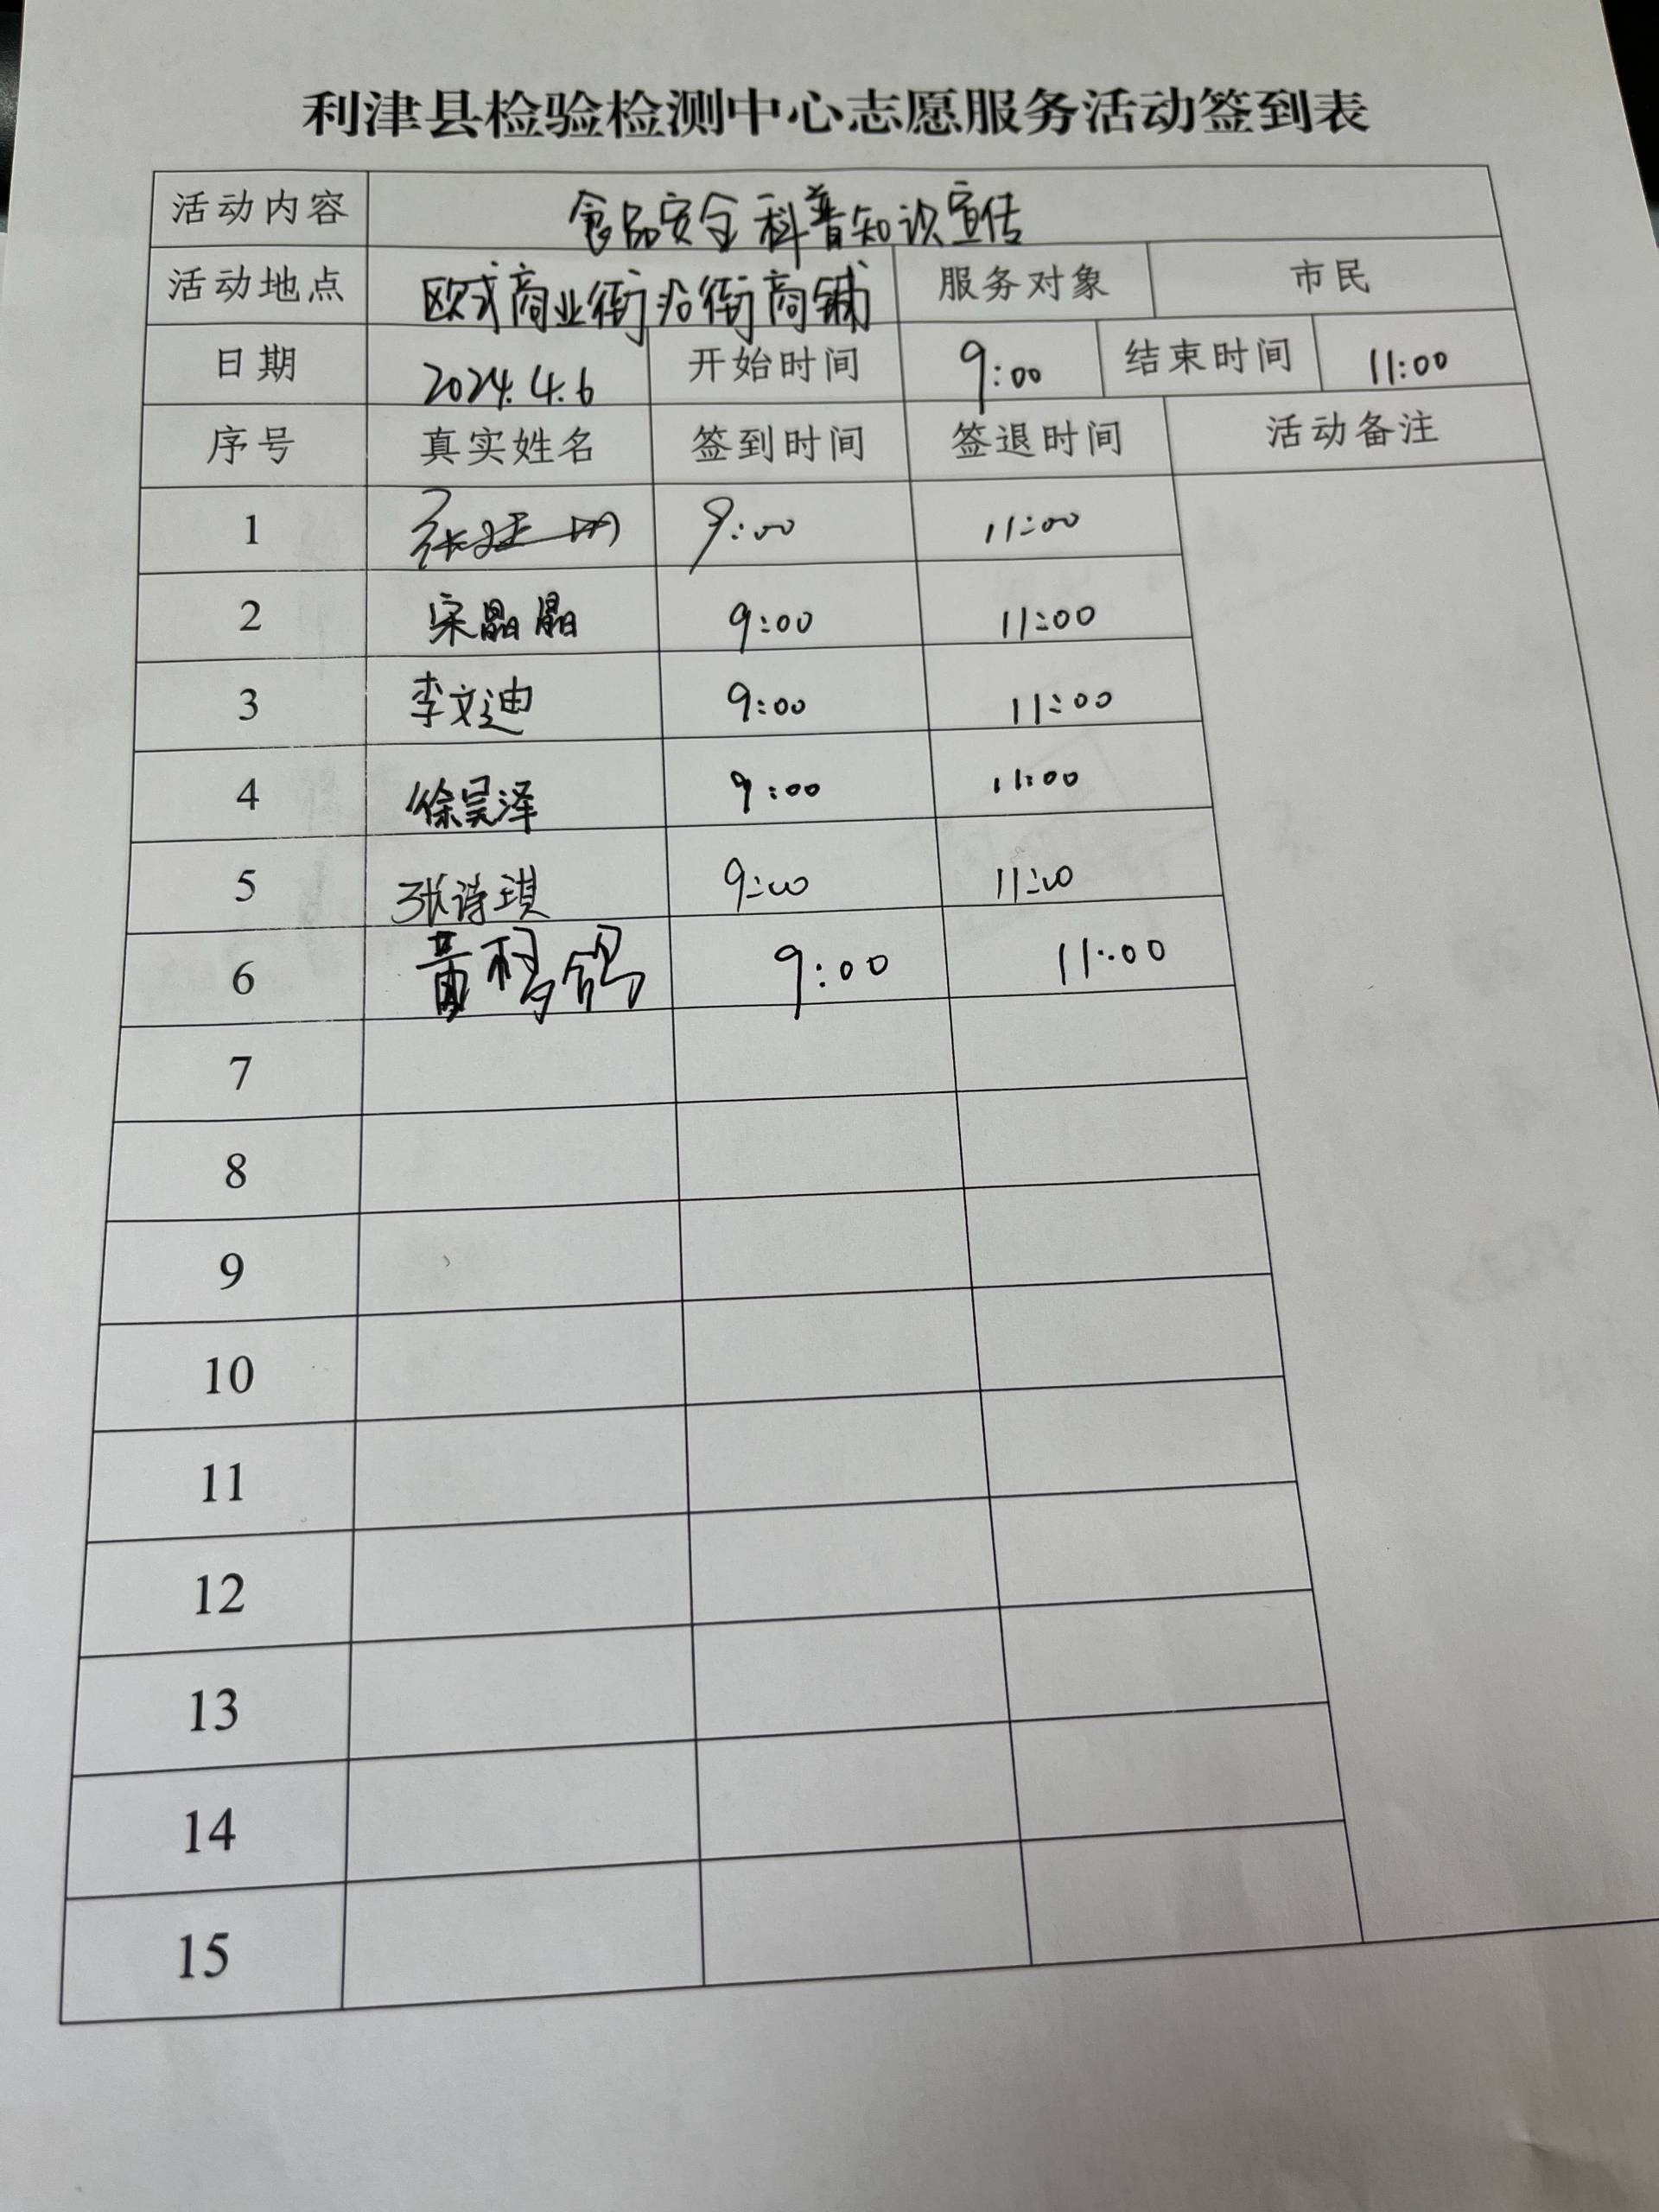 利津县检验检测中心志愿服务活动签到表
活动内容 食品安全科普知识宣传
活动地点 欧式商业街沿街商铺 服务对象 市民
日期 2024.4.6 开始时间 9:00 结束时间 11:00
序号 真实姓名 签到时间 签退时间 活动备注
1 张 9:00 11:00
2 宋晶晶 9:00 11:00
3 李文迪 9:00 11:00
4 徐昊泽 9:00 11:00
5 张诗琪 9:00 11:00
6 黄 鸽 9:00 11:00
7
8
9
10
11
12
13
14
15